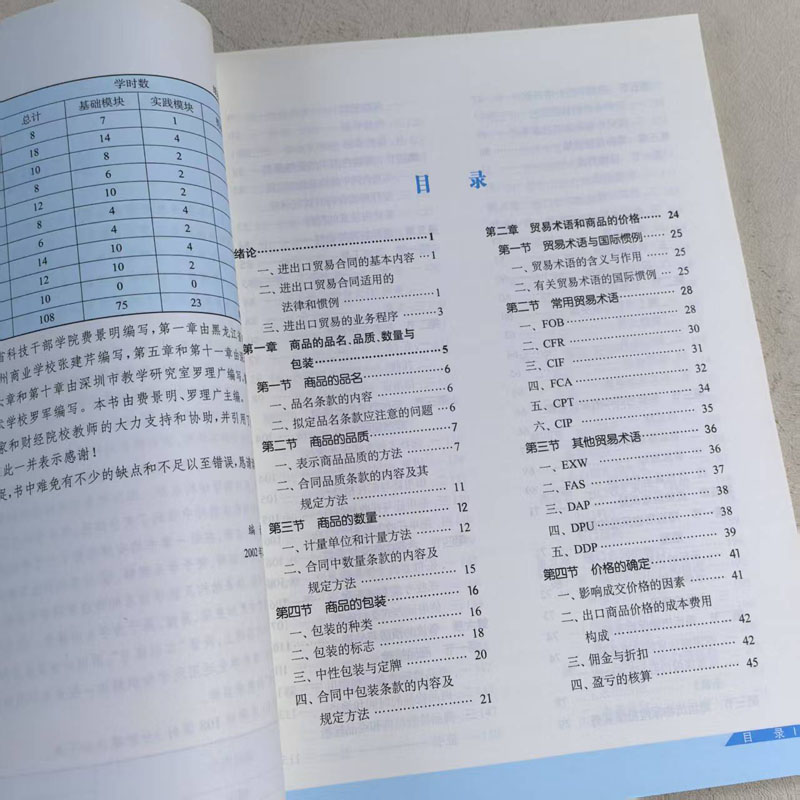 学时数
总计 基础模块 实践模块
8 7 1
18 14 4
10 8 2
8 6 2
12 10 2
8 4 4
6 4 2
14 10 4
12 10 2
10 0 0
108 75 23
科技干部学院费景明编写，第一章由黑龙江
州商业学校张建芹编写，第五章和第十一章由
章和第十章由深圳市教学研究室罗理广编写
学校罗军编写。本书由费景明、罗理广主编。
家和财经院校教师的大力支持和协助，并引用了
此一并表示感谢！
书中难免有不少的缺点和不足以至错误，恳请
编
2002年
目 录
绪论……1
一、进出口贸易合同的基本内容…1
二、进出口贸易合同适用的
法律和惯例……1
三、进出口贸易的业务程序……3
第一章 商品的品名、品质、数量与
包装……5
第一节 商品的品名……6
一、品名条款的内容……6
二、拟定品名条款应注意的问题…6
第二节 商品的品质……7
一、表示商品品质的方法……7
二、合同品质条款的内容及其
规定方法……11
第三节 商品的数量……12
一、计量单位和计量方法……12
二、合同中数量条款的内容及
规定方法……15
第四节 商品的包装……16
一、包装的种类……16
二、包装的标志……18
三、中性包装与定牌……20
四、合同中包装条款的内容及
规定方法……21
第二章 贸易术语和商品的价格……24
第一节 贸易术语与国际惯例……25
一、贸易术语的含义与作用……25
二、有关贸易术语的国际惯例…25
第二节 常用贸易术语……28
一、FOB……28
二、CFR……30
三、CIF……31
四、FCA……32
五、CPT……34
六、CIP……35
第三节 其他贸易术语……36
一、EXW……36
二、FAS……37
三、DAP……38
四、DPU……38
五、DDP……39
第四节 价格的确定……41
一、影响成交价格的因素……41
二、出口商品价格的成本费用
构成……42
三、佣金与折扣……42
四、盈亏的核算……45
目 录